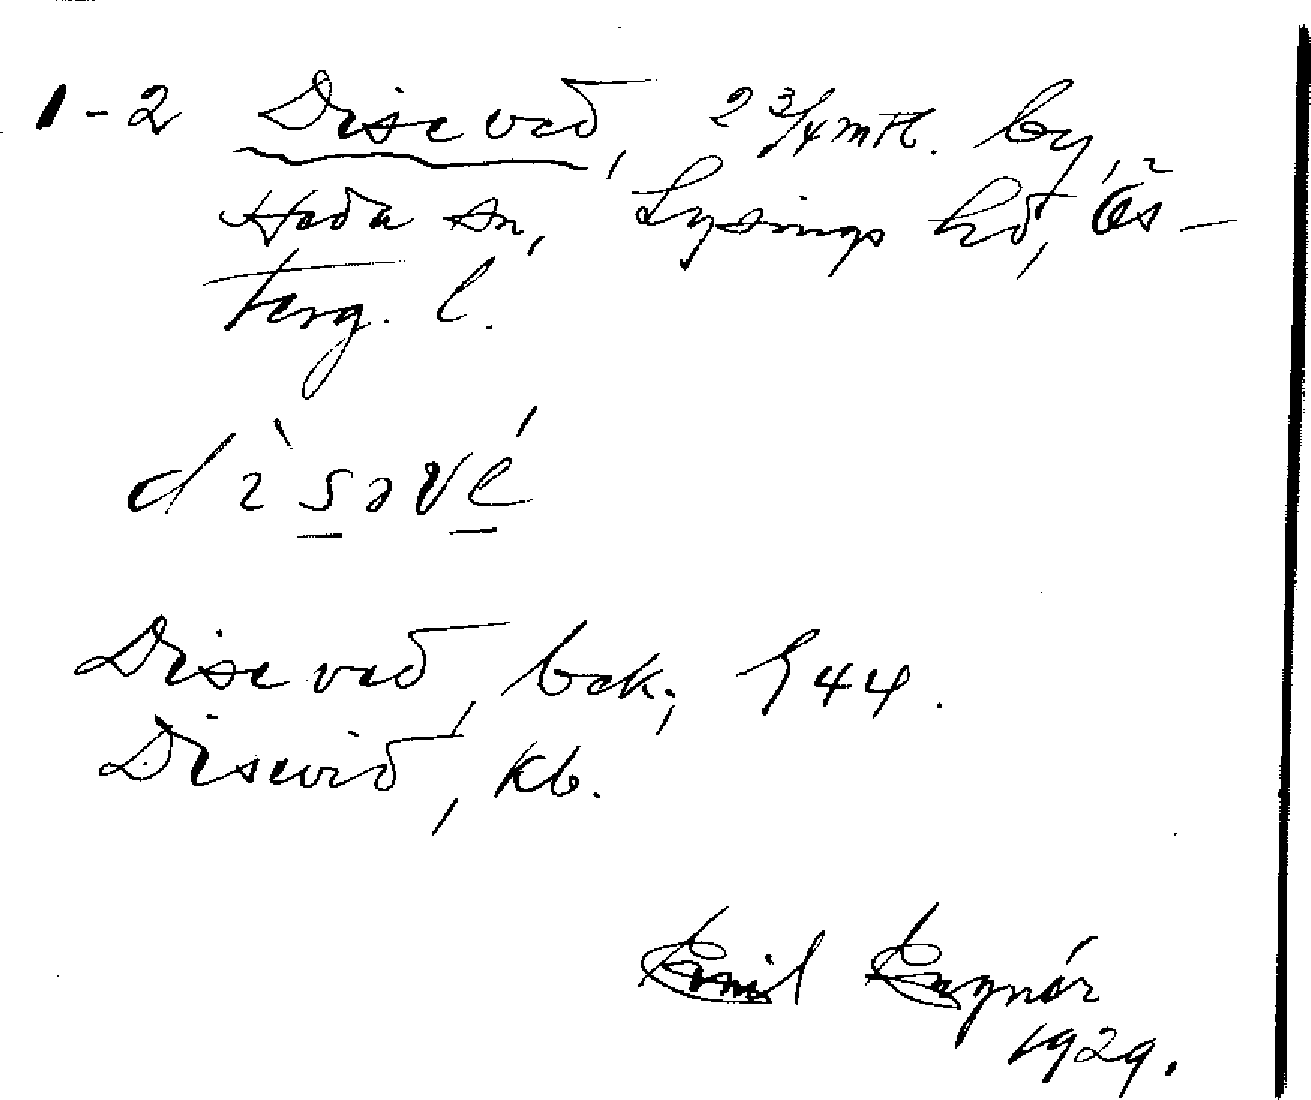 1-2 Disevid, 2 3/4 mtl. by,
Heda sn, Lysings hd, Ös-
terg. l.
dìsəvé
Disevid, bek; 944.
Disevid, kb.
Emil Egnér
1929.